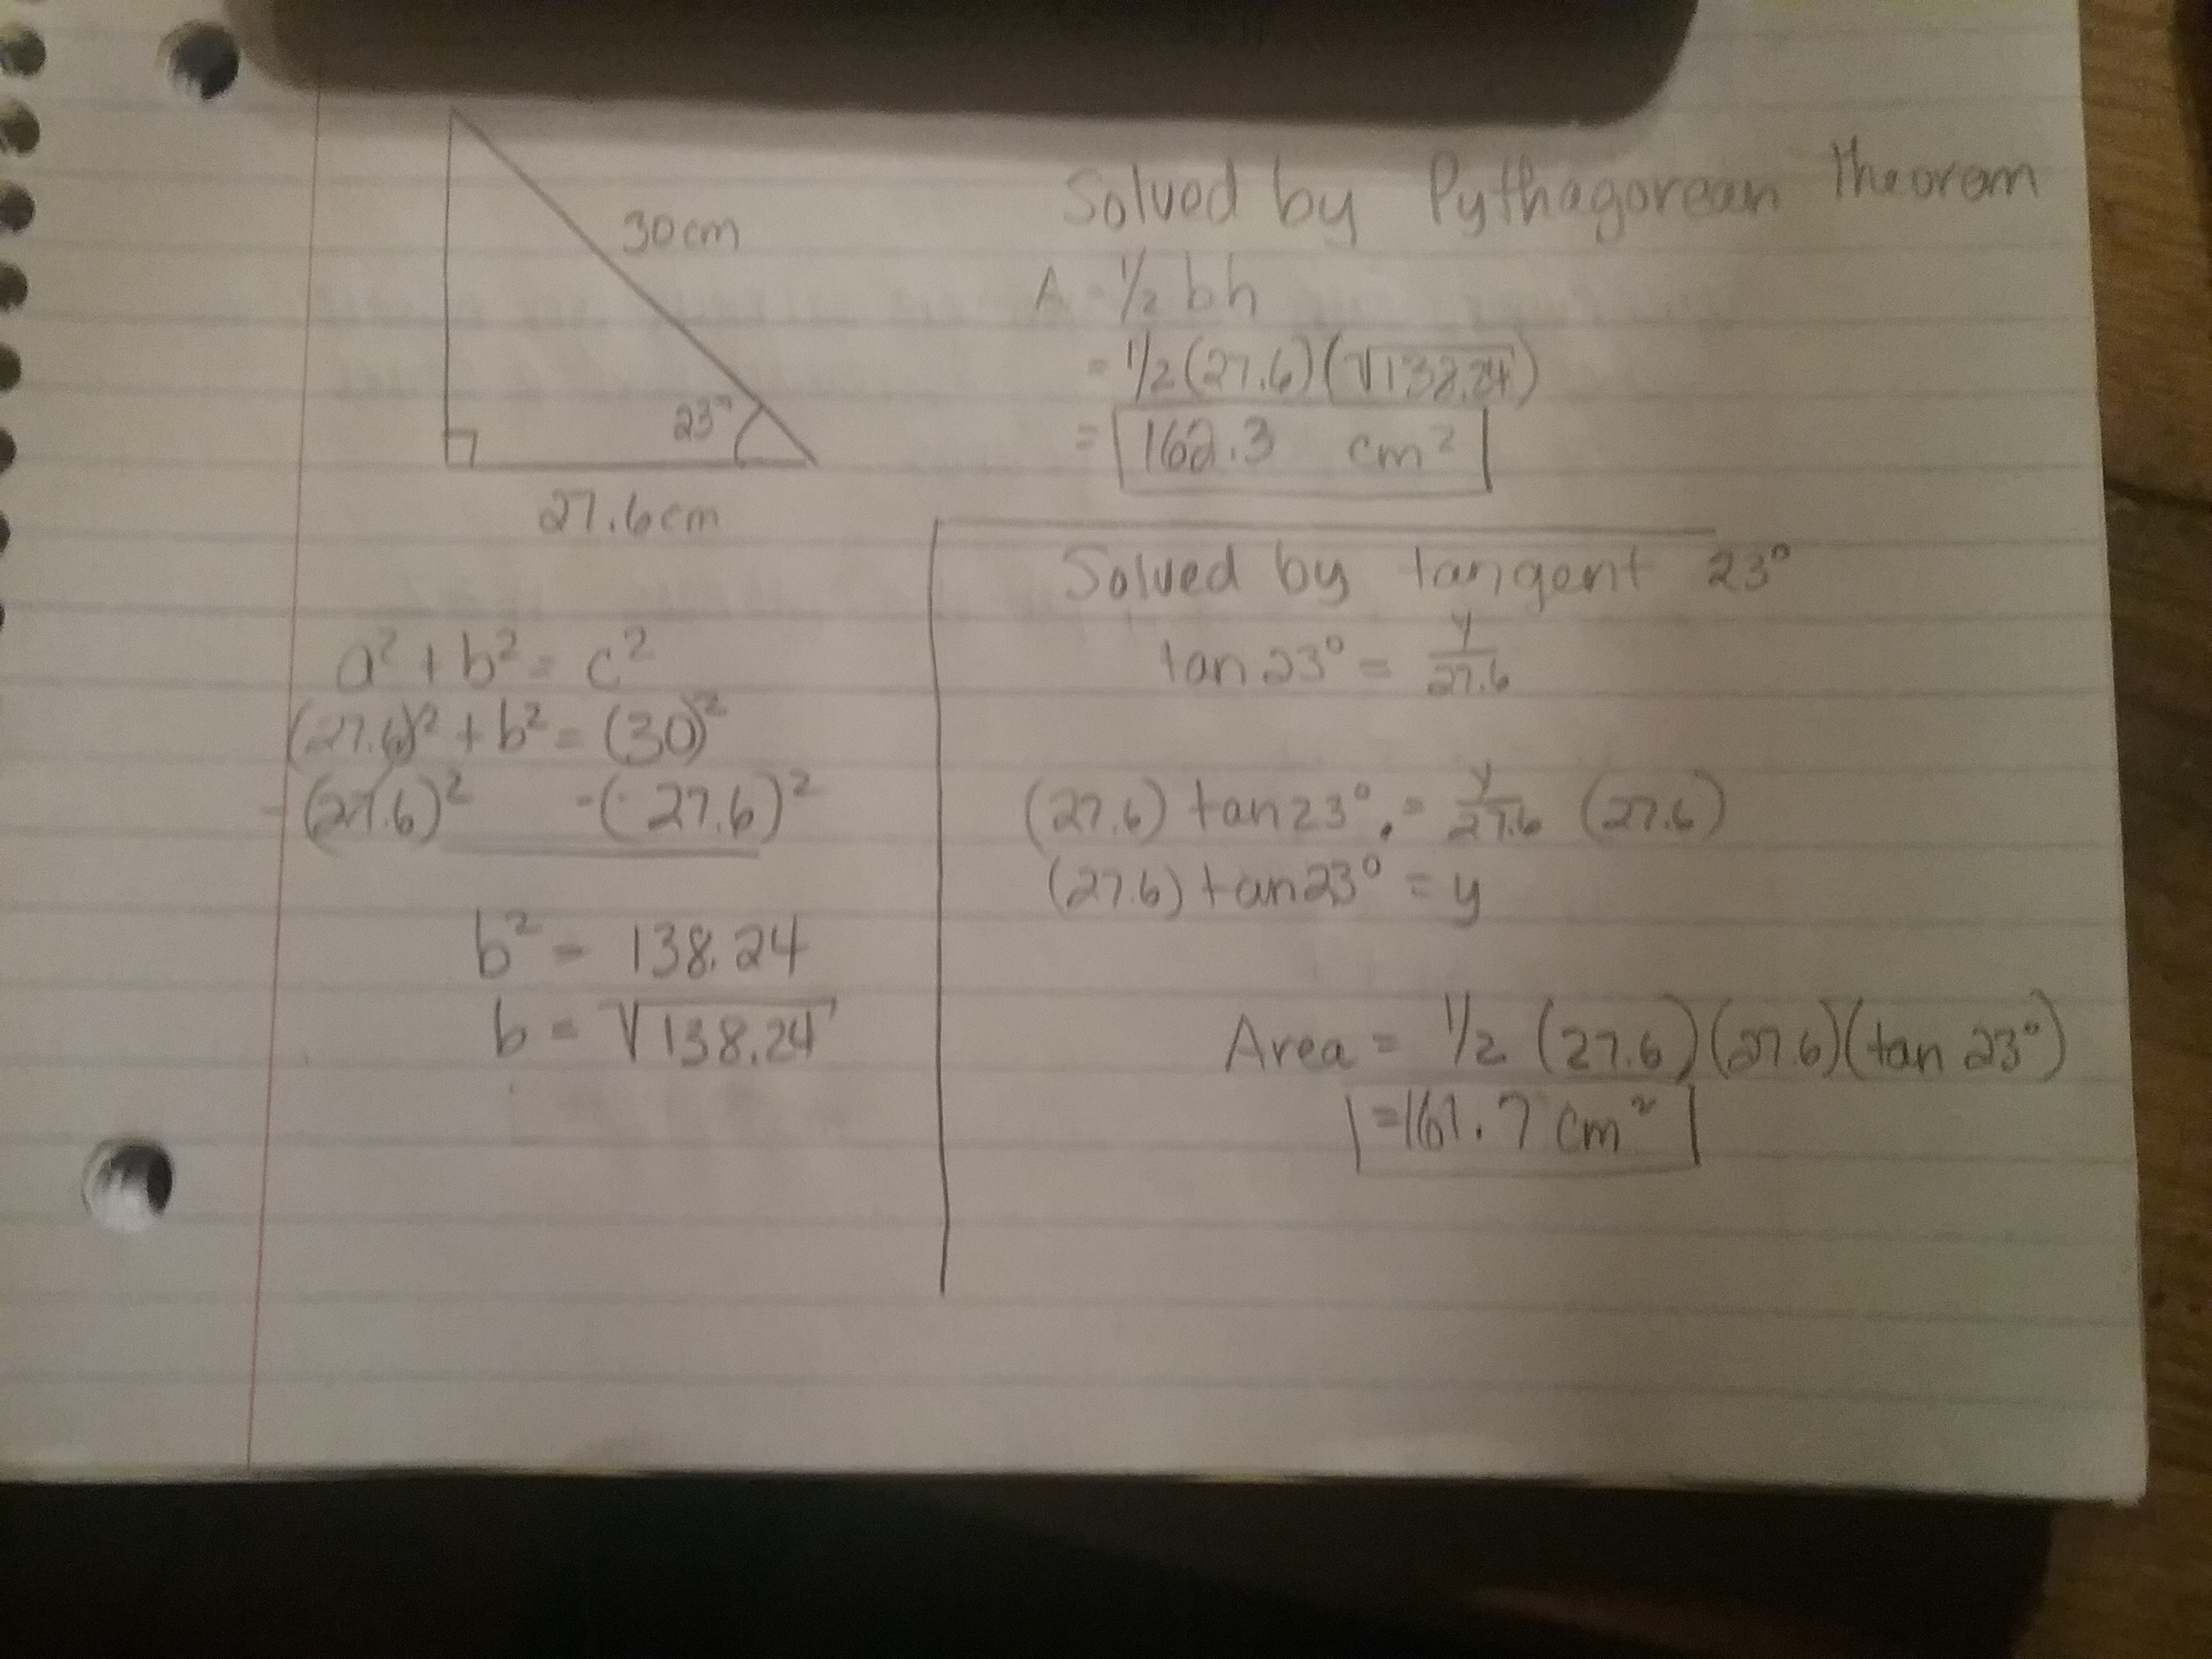 30cm
23°
27.6cm
a² + b² = c²
(27.6)² + b² = (30)²
-(27.6)² -(27.6)²
b² = 138.24
b = √138.24
Solved by Pythagorean Theorem
A = 1/2 bh
= 1/2(27.6)(√138.24)
= 162.3 cm²
Solved by tangent 23°
tan 23° = y/27.6
(27.6) tan23° = y/27.6 (27.6)
(27.6) tan23° = y
Area = 1/2 (27.6)(27.6)(tan 23°)
=161.7 cm²